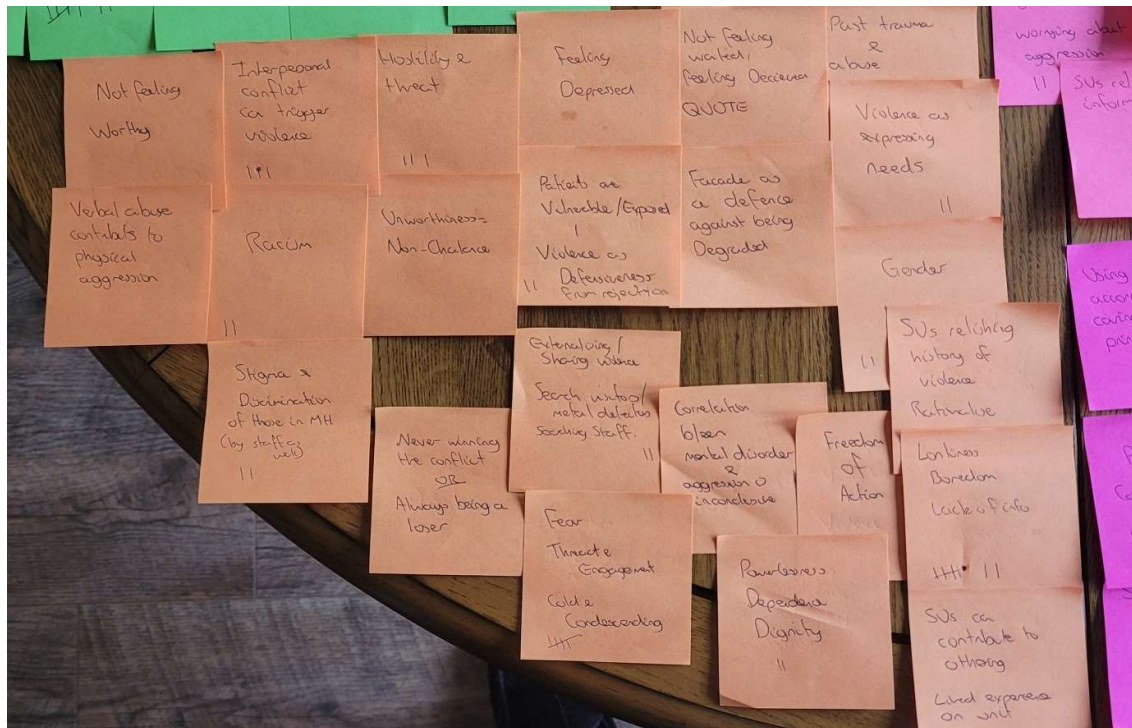 Not feeling
Worthy
Interpersonal
conflict
can trigger
violence
III
Hostility &
threat
III
Feeling
Depressed
Not feeling
wanted,
feeling
QUOTE
Past trauma
&
abuse
worrying about
aggression
II
SUs
Violence as
expressing
needs
II
Verbal abuse
contributs to
physical
aggression
Racism
II
Unworthiness =
Non-Chalance
Patients are
Vulnerable / Exposed
Violence as
Defensiveness
II from rejection
Facade as
a defence
against being
Degraded
Gender
II
Using
Stigma &
Discrimination
of those in MH
(by staff as
well)
II
Never winning
the conflict
OR
Always being a
loser
Externalising /
Sharing violence
Search visitors /
metal detectors
Searching Staff.
II
Correlation
b/een
mental disorder
&
aggression is
inconclusive
Freedom
of
Action
SUs relishing
history of
violence
Rationalise
Lonliness
Boredom
Lack of info
IIII II
Fear
Threat &
Engagement
Cold &
Condescending
IIII
Powerlessness
Dependence
Dignity
II
SUs can
contribute to
othering
Lived experience
on unit